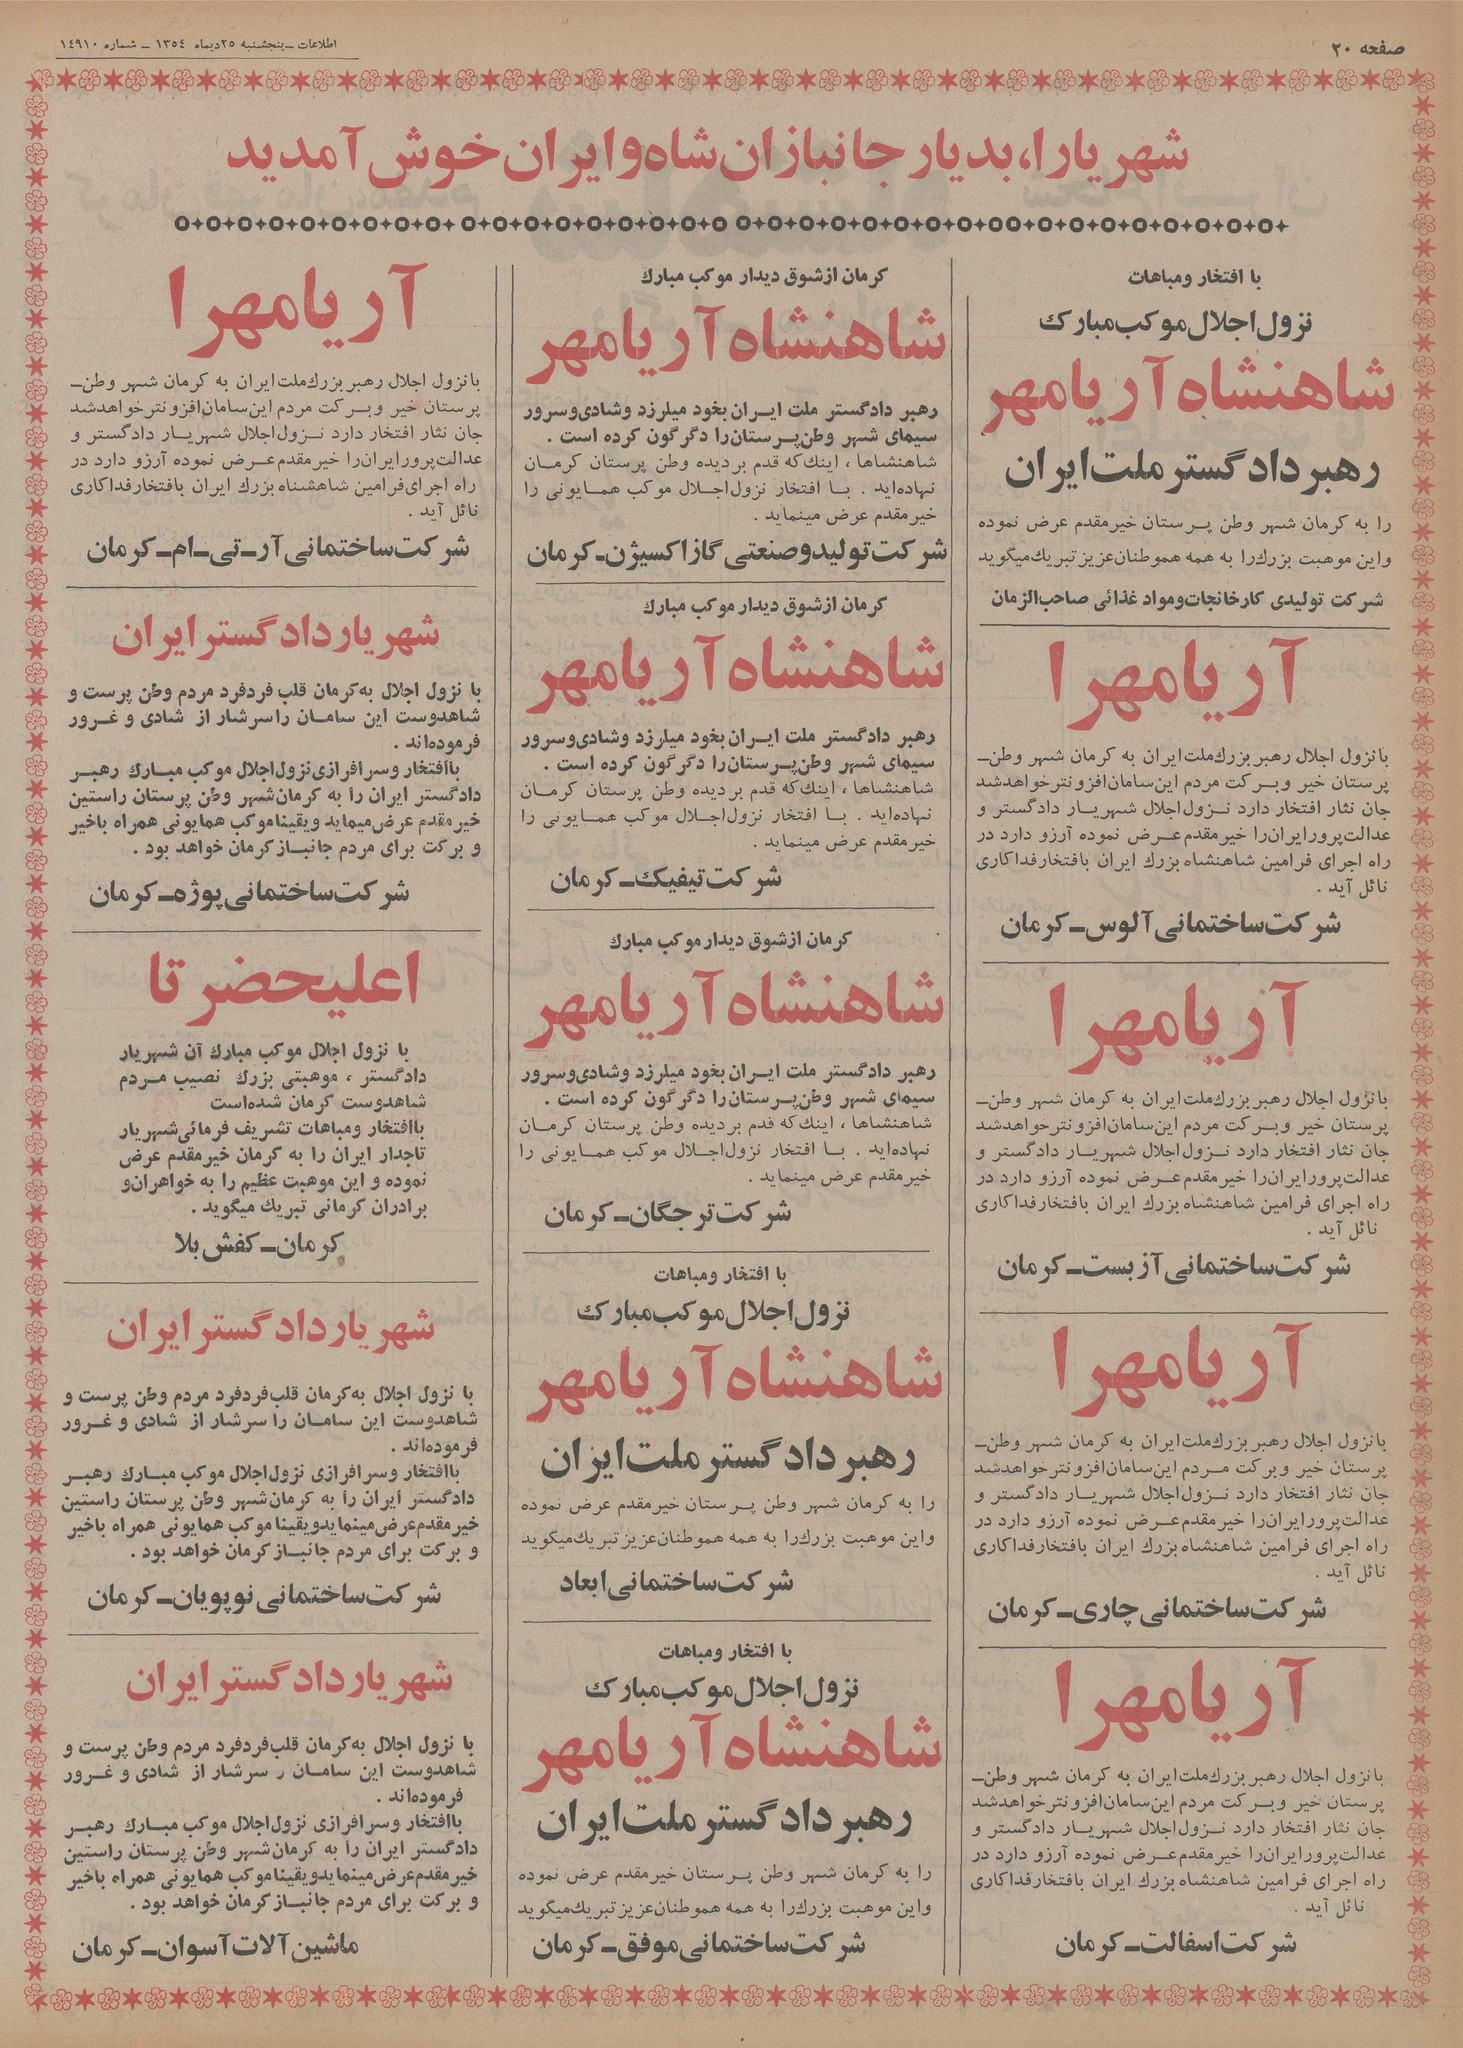 صفحه ۲۰
اطلاعات ـ پنجشنبه ۲۵ دیماه ۱۳۵۴ ـ شماره ۱۴۹۱۰
شهریارا، بدیار جانبازان شاه و ایران خوش آمدید
با افتخار ومباهات
نزول اجلال موکب مبارک
شاهنشاه آریامهر
رهبر دادگستر ملت ایران
را به کرمان شهر وطن پرستان خیرمقدم عرض نموده
واین موهبت بزرگ را به همه هموطنان عزیز تبریک میگوید
شرکت تولیدی کارخانجات ومواد غذائی صاحب الزمان
آریامهرا
با نزول اجلال رهبر بزرگ ملت ایران به کرمان شهر وطن ـ
پرستان خیر وبرکت مردم این سامان افزونتر خواهدشد
جان نثار افتخار دارد نزول اجلال شهریار دادگستر و
عدالت پرور ایران را خیرمقدم عرض نموده آرزو دارد در
راه اجرای فرامین شاهنشاه بزرگ ایران بافتخار فداکاری
نائل آید .
شرکت ساختمانی آلوس ـ کرمان
آریامهرا
با نزول اجلال رهبر بزرگ ملت ایران به کرمان شهر وطن ـ
پرستان خیر وبرکت مردم این سامان افزونتر خواهدشد
جان نثار افتخار دارد نزول اجلال شهریار دادگستر و
عدالت پرور ایران را خیرمقدم عرض نموده آرزو دارد در
راه اجرای فرامین شاهنشاه بزرگ ایران بافتخار فداکاری
نائل آید .
شرکت ساختمانی آزبست ـ کرمان
آریامهرا
با نزول اجلال رهبر بزرگ ملت ایران به کرمان شهر وطن ـ
پرستان خیر وبرکت مردم این سامان افزونتر خواهدشد
جان نثار افتخار دارد نزول اجلال شهریار دادگستر و
عدالت پرور ایران را خیرمقدم عرض نموده آرزو دارد در
راه اجرای فرامین شاهنشاه بزرگ ایران بافتخار فداکاری
نائل آید .
شرکت ساختمانی چاری ـ کرمان
آریامهرا
با نزول اجلال رهبر بزرگ ملت ایران به کرمان شهر وطن ـ
پرستان خیر وبرکت مردم این سامان افزونتر خواهدشد
جان نثار افتخار دارد نزول اجلال شهریار دادگستر و
عدالت پرور ایران را خیرمقدم عرض نموده آرزو دارد در
راه اجرای فرامین شاهنشاه بزرگ ایران بافتخار فداکاری
نائل آید .
شرکت اسفالت ـ کرمان
کرمان از شوق دیدار موکب مبارک
شاهنشاه آریامهر
رهبر دادگستر ملت ایران بخود میلرزد وشادی وسرور
سیمای شهر وطن پرستان را دگرگون کرده است .
شاهنشاها ، اینک که قدم بر دیده وطن پرستان کرمان
نهاده اید . با افتخار نزول اجلال موکب همایونی را
خیرمقدم عرض مینماید .
شرکت تولید و صنعتی گاز اکسیژن ـ کرمان
کرمان از شوق دیدار موکب مبارک
شاهنشاه آریامهر
رهبر دادگستر ملت ایران بخود میلرزد وشادی وسرور
سیمای شهر وطن پرستان را دگرگون کرده است .
شاهنشاها ، اینک که قدم بر دیده وطن پرستان کرمان
نهاده اید . با افتخار نزول اجلال موکب همایونی را
خیرمقدم عرض مینماید .
شرکت تیفیک ـ کرمان
کرمان از شوق دیدار موکب مبارک
شاهنشاه آریامهر
رهبر دادگستر ملت ایران بخود میلرزد وشادی وسرور
سیمای شهر وطن پرستان را دگرگون کرده است .
شاهنشاها ، اینک که قدم بر دیده وطن پرستان کرمان
نهاده اید . با افتخار نزول اجلال موکب همایونی را
خیرمقدم عرض مینماید .
شرکت ترجگان ـ کرمان
با افتخار ومباهات
نزول اجلال موکب مبارک
شاهنشاه آریامهر
رهبر دادگستر ملت ایران
را به کرمان شهر وطن پرستان خیرمقدم عرض نموده
واین موهبت بزرگ را به همه هموطنان عزیز تبریک میگوید
شرکت ساختمانی ابعاد
با افتخار ومباهات
نزول اجلال موکب مبارک
شاهنشاه آریامهر
رهبر دادگستر ملت ایران
را به کرمان شهر وطن پرستان خیرمقدم عرض نموده
واین موهبت بزرگ را به همه هموطنان عزیز تبریک میگوید
شرکت ساختمانی موفق ـ کرمان
آریامهرا
با نزول اجلال رهبر بزرگ ملت ایران به کرمان شهر وطن ـ
پرستان خیر وبرکت مردم این سامان افزونتر خواهدشد
جان نثار افتخار دارد نزول اجلال شهریار دادگستر و
عدالت پرور ایران را خیرمقدم عرض نموده آرزو دارد در
راه اجرای فرامین شاهشناه بزرگ ایران بافتخار فداکاری
نائل آید .
شرکت ساختمانی آر ـ تی ـ ام ـ کرمان
شهریار دادگستر ایران
با نزول اجلال به کرمان قلب فردفرد مردم وطن پرست و
شاهدوست این سامان را سرشار از شادی و غرور
فرموده اند .
باافتخار وسرافرازی نزول اجلال موکب مبارک رهبر
دادگستر ایران را به کرمان شهر وطن پرستان راستین
خیرمقدم عرض میماید و یقینا موکب همایونی همراه باخیر
و برکت برای مردم جانباز کرمان خواهد بود .
شرکت ساختمانی پوژه ـ کرمان
اعلیحضرتا
با نزول اجلال موکب مبارک آن شهریار
دادگستر ، موهبتی بزرگ نصیب مردم
شاهدوست کرمان شده است
باافتخار ومباهات تشریف فرمائی شهریار
تاجدار ایران را به کرمان خیرمقدم عرض
نموده و این موهبت عظیم را به خواهران و
برادران کرمانی تبریک میگوید .
کرمان ـ کفش بلا
شهریار دادگستر ایران
با نزول اجلال به کرمان قلب فردفرد مردم وطن پرست و
شاهدوست این سامان را سرشار از شادی و غرور
فرموده اند .
باافتخار وسرافرازی نزول اجلال موکب مبارک رهبر
دادگستر ایران را به کرمان شهر وطن پرستان راستین
خیرمقدم عرض مینماید و یقینا موکب همایونی همراه باخیر
و برکت برای مردم جانباز کرمان خواهد بود .
شرکت ساختمانی نوپویان ـ کرمان
شهریار دادگستر ایران
با نزول اجلال به کرمان قلب فردفرد مردم وطن پرست و
شاهدوست این سامان ر سرشار از شادی و غرور
فرموده اند .
باافتخار وسرافرازی نزول اجلال موکب مبارک رهبر
دادگستر ایران را به کرمان شهر وطن پرستان راستین
خیرمقدم عرض مینماید و یقینا موکب همایونی همراه باخیر
و برکت برای مردم جانباز کرمان خواهد بود .
ماشین آلات آسوان ـ کرمان